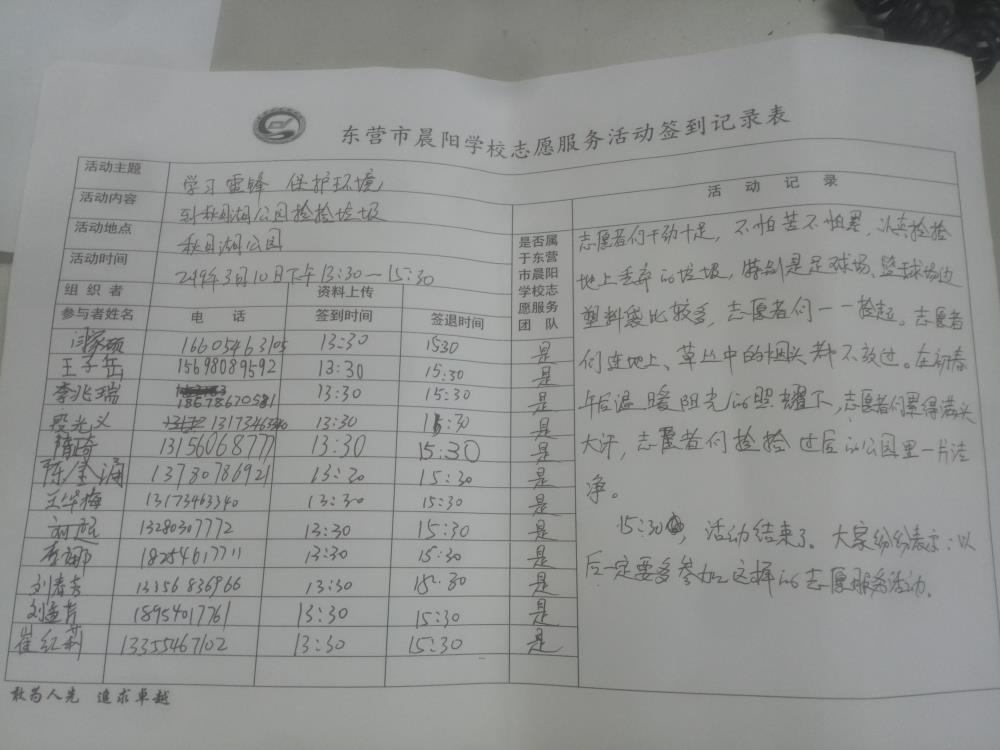 东营市晨阳学校志愿服务活动签到记录表
活动主题 学习雷锋 保护环境
活动内容 到秋月湖公园捡捡垃圾
活动地点 秋月湖公园
活动时间 2019年3月10日下午13:30—15:30
组织者 资料上传
参与者姓名 电话 签到时间 签退时间
是否属
于东营
市晨阳
学校志
愿服务
团队
16605463105 13:30 1530 是
王子岳 15698089592 13:30 15:30 是
李兆瑞 18678670581 13:30 15:30 是
段光义 13173463340 13:30 15:30 是
13156068777 13:30 15:30 是
陈金涌 13780786921 13:30 15:30 是
王华梅 13173463340 13:30 15:30 是
刘 13280307772 13:30 15:30 是
李娜 18254617711 13:30 15:30 是
刘春芳 13156836966 13:30 15:30 是
刘孟芹 18954017761 13:30 15:30 是
崔红莉 13355467102 13:30 15:30 是
活动记录
志愿者们干劲十足，不怕苦不怕累，认真捡捡
地上丢弃的垃圾，特别是足球场、篮球场边
塑料袋比较多，志愿者们一一捡起。志愿者
们连地上、草丛中的烟头都不放过。在初春
午后温暖阳光的照耀下，志愿者们累得满头
大汗，志愿者们捡捡过后的公园里一片洁
净。
15:30，活动结束了。大家纷纷表示：以
后一定要多参加这样的志愿服务活动。
敢为人先 追求卓越